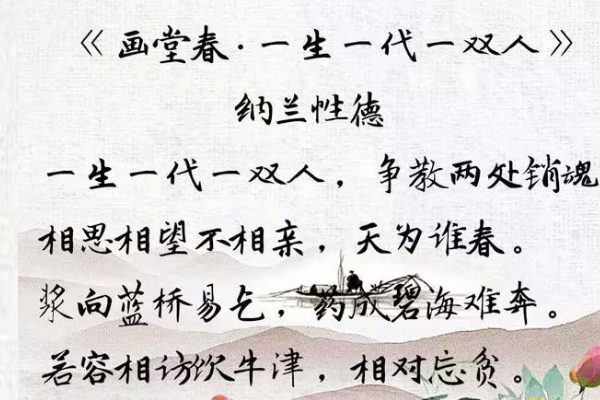 《画堂春·一生一代一双人》
纳兰性德
一生一代一双人，争教两处销魂
相思相望不相亲，天为谁春。
浆向蓝桥易乞，药成碧海难奔。
若容相访饮牛津，相对忘贫。